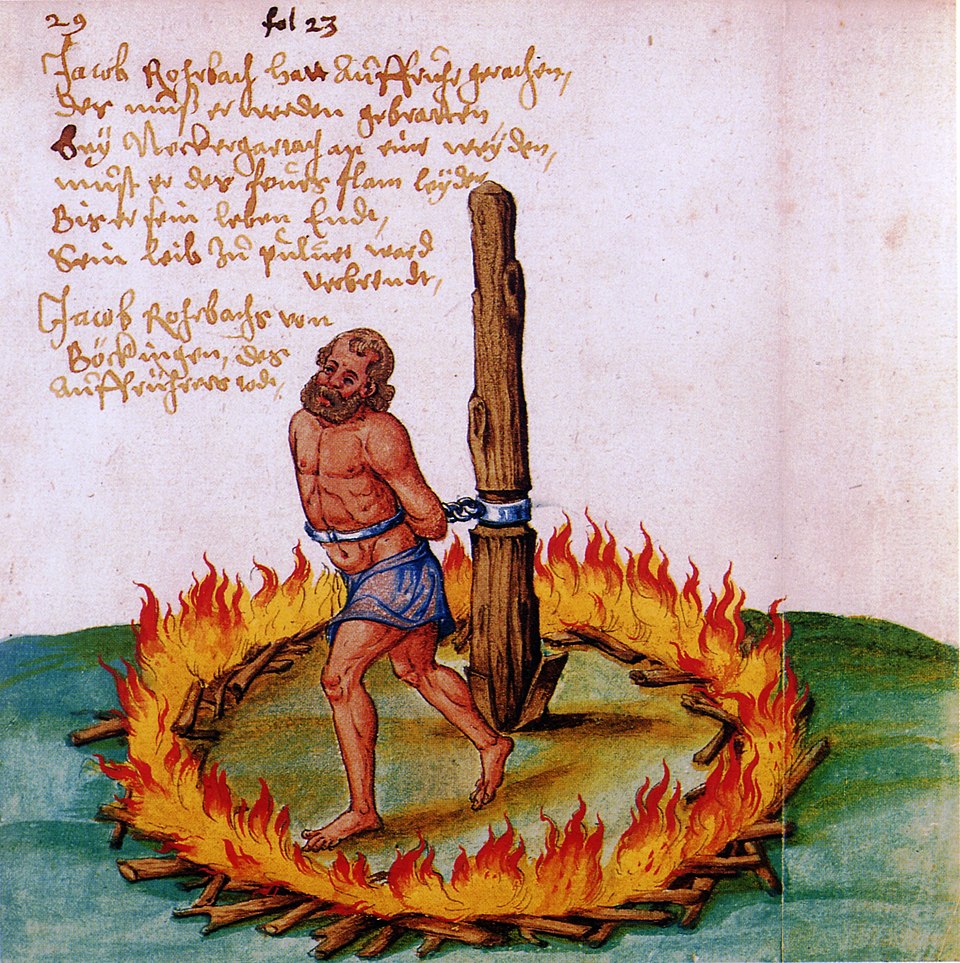 29 fol 23
Jacob Rohrbach hatt Auffruhr gerachen,
der muß er werden gebratten
bey Neckergartach an eine weyden,
must er des feuers flam leyden
Bis er sein leben Endt,
Sein leib zu puluer ward
verbrendt,
Jacob Rohrbachs von
Böckingen, des
Auffrührers todt,